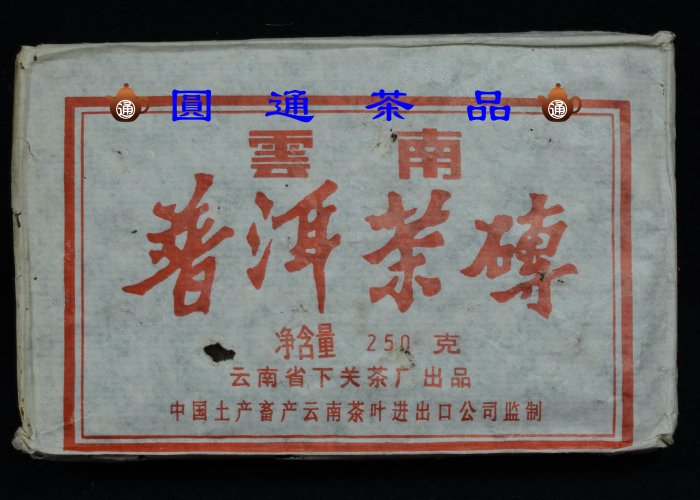 通 圓通茶品 通
雲南
普洱茶磚
净含量 250 克
云南省下关茶厂出品
中国土产畜产云南茶叶进出口公司监制